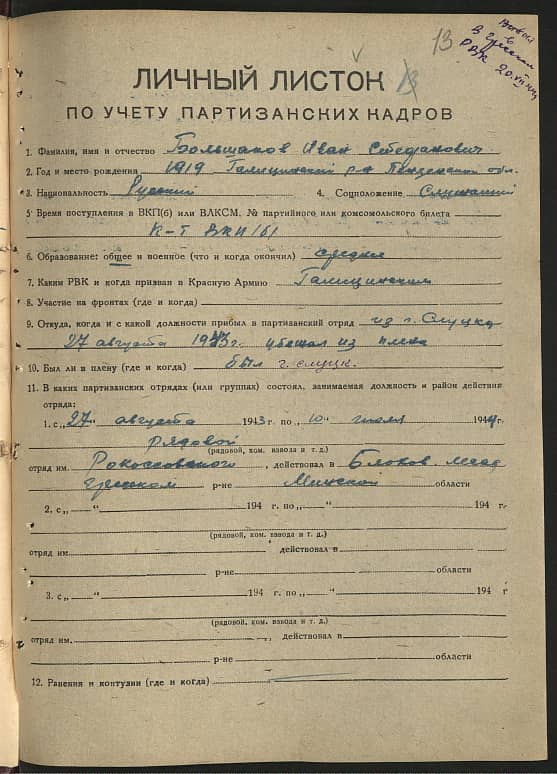 13
в
РВК 20.VII 44г
ЛИЧНЫЙ ЛИСТОК
13
ПО УЧЕТУ ПАРТИЗАНСКИХ КАДРОВ
1. Фамилия, имя и отчество Большаков Иван Стефанович
2. Год и место рождения 1919 Галицинский р-н Пензенской обл.
3. Национальность Русский 4. Соцположение Служащий
5. Время поступления в ВКП(б) или ВЛКСМ, № партийного или комсомольского билета
К-т ВКП(б)
6. Образование: общее и военное (что и когда окончил) среднее
7. Каким РВК и когда призван в Красную Армию Галицинским
8. Участие на фронтах (где и когда)
9. Откуда, когда и с какой должности прибыл в партизанский отряд из г. Слуцка
27 августа 1943г. убежал из плена
10. Был ли в плену (где и когда) был г. Слуцк.
11. В каких партизанских отрядах (или группах) состоял, занимаемая должность и район действия
отряда:
1. с „27“ августа 1943 г. по „10“ июля 1944 г.
рядовой
(рядовой, ком. взвода и т. д.)
отряд им. Рокоссовского, действовал в
р-не Минской области
2. с „ “ 194 г. по „ “ 194 г.
(рядовой, ком. взвода и т. д.)
отряд им. действовал в
р-не области
3. с „ “ 194 г. по „ “ 194 г
(рядовой, ком. взвода и т. д.)
отряд им. , действовал в
р-не области
12. Ранения и контузии (где и когда)